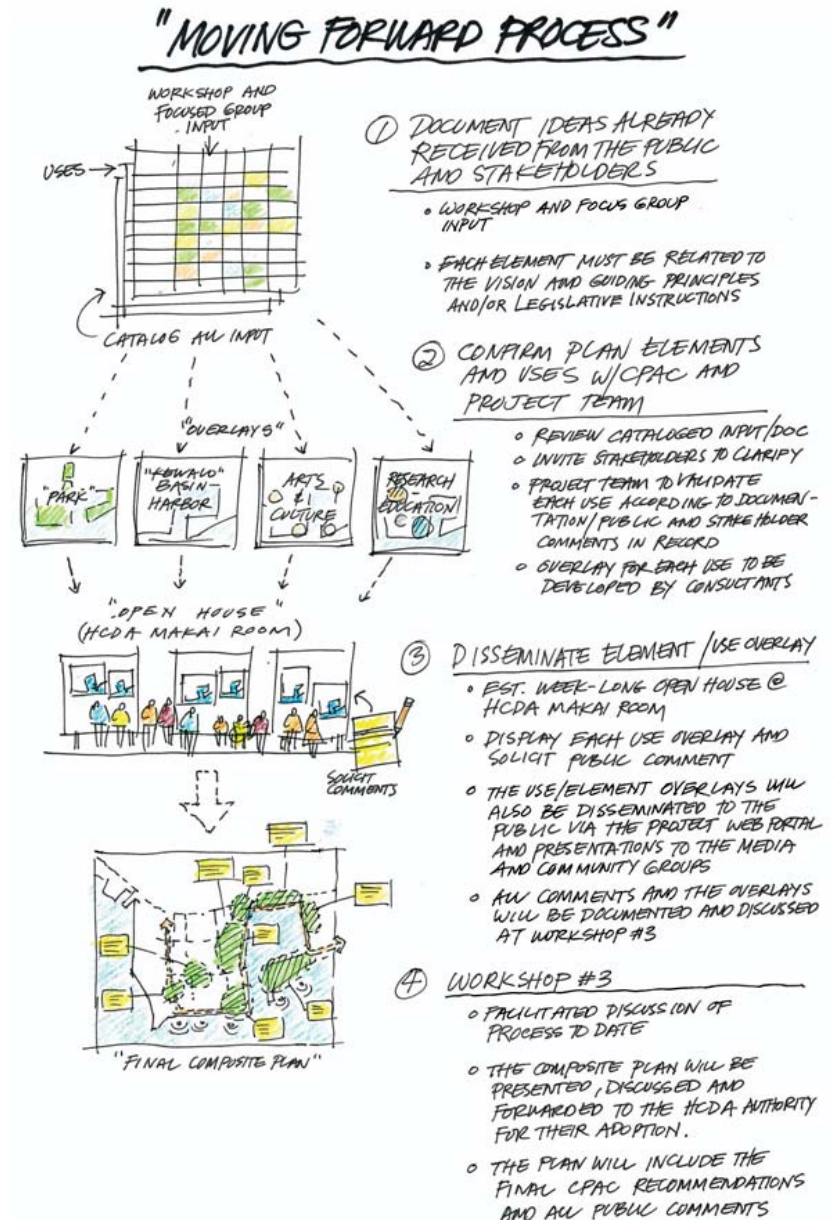 "MOVING FORWARD PROCESS"
WORKSHOP AND
FOCUSED GROUP
INPUT
USES
CATALOG ALL INPUT
"OVERLAYS"
"PARK"
"KEWALO"
BASIN
HARBOR
ARTS
&
CULTURE
RESEARCH
EDUCATION
"OPEN HOUSE"
(HCDA MAKAI ROOM)
SOLICIT
COMMENTS
"FINAL COMPOSITE PLAN"
① DOCUMENT IDEAS ALREADY
RECEIVED FROM THE PUBLIC
AND STAKEHOLDERS
• WORKSHOP AND FOCUS GROUP
INPUT
• EACH ELEMENT MUST BE RELATED TO
THE VISION AND GUIDING PRINCIPLES
AND/OR LEGISLATIVE INSTRUCTIONS
② CONFIRM PLAN ELEMENTS
AND USES W/CPAC AND
PROJECT TEAM
• REVIEW CATALOGED INPUT/DOC
• INVITE STAKEHOLDERS TO CLARIFY
• PROJECT TEAM TO VALIDATE
EACH USE ACCORDING TO DOCUMEN-
TATION/PUBLIC AND STAKE HOLDER
COMMENTS IN RECORD
• OVERLAY FOR EACH USE TO BE
DEVELOPED BY CONSULTANTS
③ DISSEMINATE ELEMENT/USE OVERLAY
• EST. WEEK-LONG OPEN HOUSE @
HCDA MAKAI ROOM
• DISPLAY EACH USE OVERLAY AND
SOLICIT PUBLIC COMMENT
• THE USE/ELEMENT OVERLAYS WILL
ALSO BE DISSEMINATED TO THE
PUBLIC VIA THE PROJECT WEB PORTAL
AND PRESENTATIONS TO THE MEDIA
AND COMMUNITY GROUPS
• ALL COMMENTS AND THE OVERLAYS
WILL BE DOCUMENTED AND DISCUSSED
AT WORKSHOP #3
④ WORKSHOP #3
• FACILITATED DISCUSSION OF
PROCESS TO DATE
• THE COMPOSITE PLAN WILL BE
PRESENTED, DISCUSSED AND
FORWARDED TO THE HCDA AUTHORITY
FOR THEIR ADOPTION.
• THE PLAN WILL INCLUDE THE
FINAL CPAC RECOMMENDATIONS
AND ALL PUBLIC COMMENTS